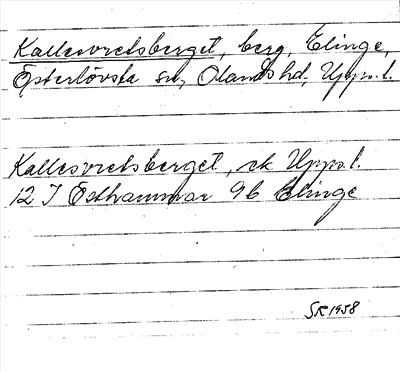 Kallesvretsberget, berg, Elinge,
Österlövsta sn, Olands hd, Upps.l.
Kallesvretsberget, ek Upps.l.
12 I Östhammar 9b Elinge
SR 1958